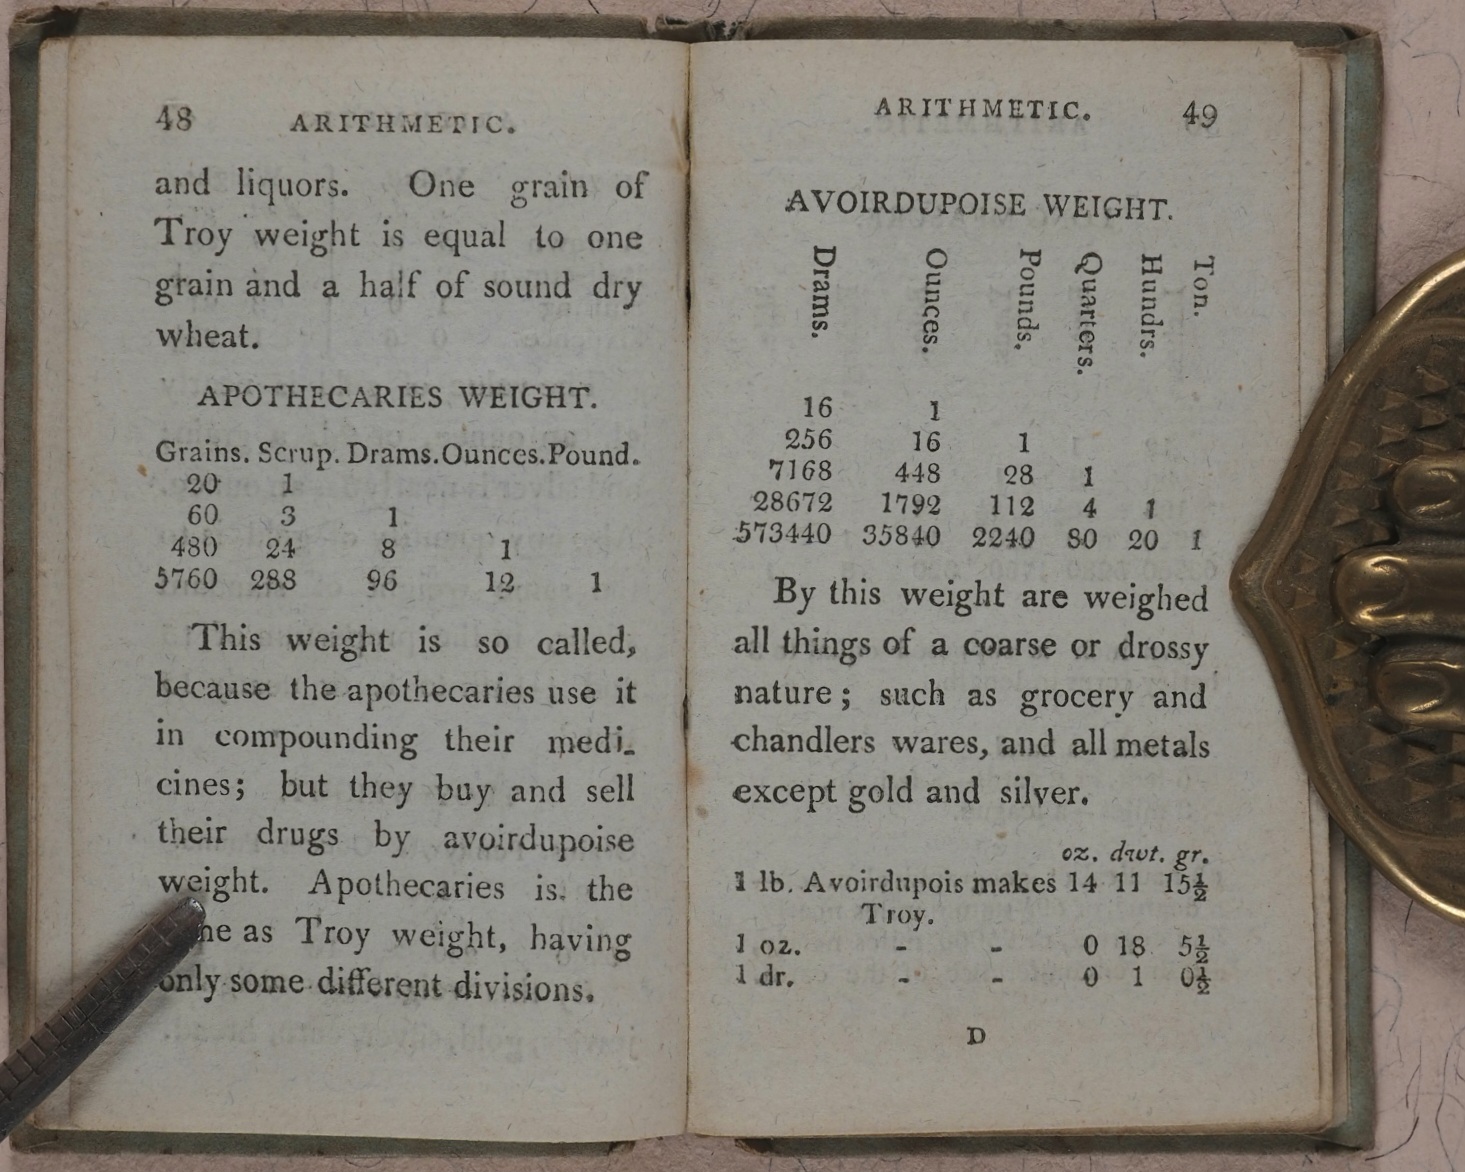 48 ARITHMETIC.
and liquors. One grain of
Troy weight is equal to one
grain and a half of sound dry
wheat.
APOTHECARIES WEIGHT.
Grains. Scrup. Drams. Ounces. Pound.
20 1
60 3 1
480 24 8 1
5760 288 96 12 1
This weight is so called,
because the apothecaries use it
in compounding their medi-
cines; but they buy and sell
their drugs by avoirdupoise
weight. Apothecaries is the
as Troy weight, having
only some different divisions.
ARITHMETIC. 49
AVOIRDUPOISE WEIGHT.
Drams. Ounces. Pounds. Quarters. Hundrs. Ton.
16 1
256 16 1
7168 448 28 1
28672 1792 112 4 1
573440 35840 2240 80 20 1
By this weight are weighed
all things of a coarse or drossy
nature; such as grocery and
chandlers wares, and all metals
except gold and silver.
oz. dwt. gr.
1 lb. Avoirdupois makes 14 11 15½
Troy.
1 oz. - - 0 18 5½
1 dr. - - 0 1 0½
D